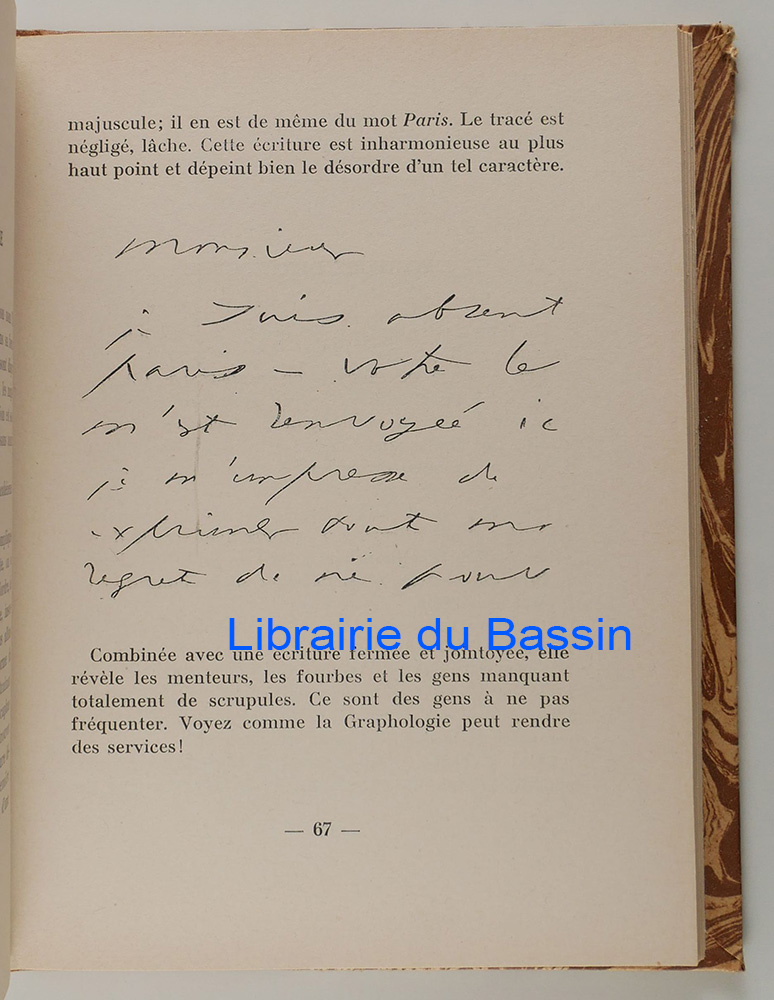 majuscule; il en est de même du mot Paris. Le tracé est
négligé, lâche. Cette écriture est inharmonieuse au plus
haut point et dépeint bien le désordre d'un tel caractère.
monsieur
je suis absent
paris – votre le
m'est renvoyéé ic
je m'empresse de
exprimer tout mo
regret de ne pouv
Librairie du Bassin
Combinée avec une écriture fermée et jointoyée, elle
révèle les menteurs, les fourbes et les gens manquant
totalement de scrupules. Ce sont des gens à ne pas
fréquenter. Voyez comme la Graphologie peut rendre
des services!
— 67 —